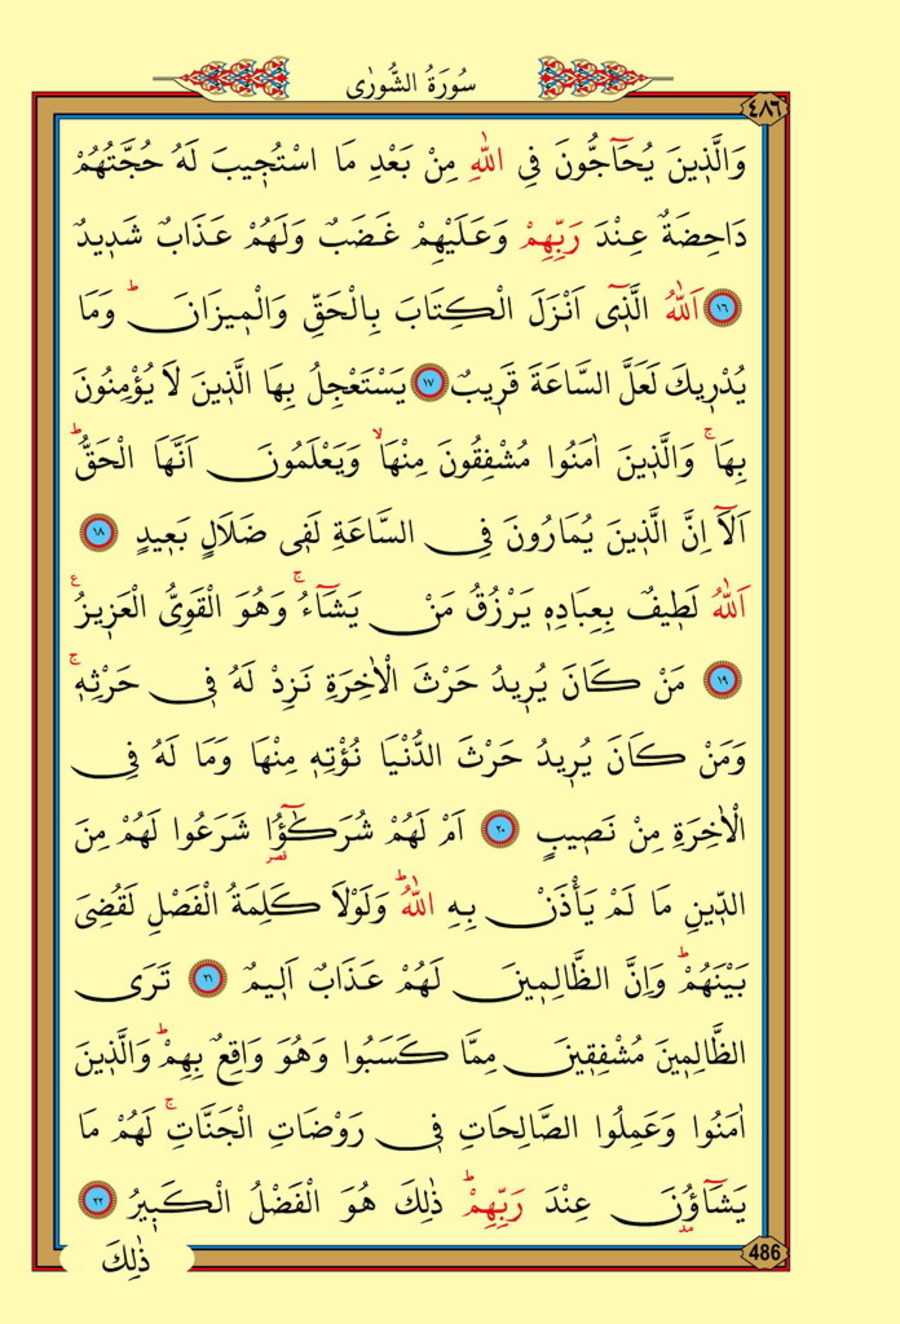 سُورَةُ الشُّورٰى
٤٨٦
وَالَّذ۪ينَ يُحَٓاجُّونَ فِي اللّٰهِ مِنْ بَعْدِ مَا اسْتُج۪يبَ لَهُ حُجَّتُهُمْ
دَاحِضَةٌ عِنْدَ رَبِّهِمْ وَعَلَيْهِمْ غَضَبٌ وَلَهُمْ عَذَابٌ شَد۪يدٌ
﴿١٦﴾ اَللّٰهُ الَّذ۪ٓي اَنْزَلَ الْكِتَابَ بِالْحَقِّ وَالْم۪يزَانَۜ وَمَا
يُدْر۪يكَ لَعَلَّ السَّاعَةَ قَر۪يبٌ ﴿١٧﴾ يَسْتَعْجِلُ بِهَا الَّذ۪ينَ لَا يُؤْمِنُونَ
بِهَاۚ وَالَّذ۪ينَ اٰمَنُوا مُشْفِقُونَ مِنْهَاۙ وَيَعْلَمُونَ اَنَّهَا الْحَقُّۜ
اَلَٓا اِنَّ الَّذ۪ينَ يُمَارُونَ فِي السَّاعَةِ لَف۪ي ضَلَالٍ بَع۪يدٍ ﴿١٨﴾
اَللّٰهُ لَط۪يفٌ بِعِبَادِه۪ يَرْزُقُ مَنْ يَشَٓاءُۚ وَهُوَ الْقَوِيُّ الْعَز۪يزُ۟
﴿١٩﴾ مَنْ كَانَ يُر۪يدُ حَرْثَ الْاٰخِرَةِ نَزِدْ لَهُ ف۪ي حَرْثِه۪ۚ
وَمَنْ كَانَ يُر۪يدُ حَرْثَ الدُّنْيَا نُؤْتِه۪ مِنْهَا وَمَا لَهُ فِي
الْاٰخِرَةِ مِنْ نَص۪يبٍ ﴿٢٠﴾ اَمْ لَهُمْ شُرَكٰٓؤُ۬ا شَرَعُوا لَهُمْ مِنَ
قصر
الدّ۪ينِ مَا لَمْ يَأْذَنْ بِهِ اللّٰهُۜ وَلَوْلَا كَلِمَةُ الْفَصْلِ لَقُضِيَ
بَيْنَهُمْۜ وَاِنَّ الظَّالِم۪ينَ لَهُمْ عَذَابٌ اَل۪يمٌ ﴿٢١﴾ تَرَى
الظَّالِم۪ينَ مُشْفِق۪ينَ مِمَّا كَسَبُوا وَهُوَ وَاقِعٌ بِهِمْۜ وَالَّذ۪ينَ
اٰمَنُوا وَعَمِلُوا الصَّالِحَاتِ ف۪ي رَوْضَاتِ الْجَنَّاتِۚ لَهُمْ مَا
يَشَٓاؤُ۫نَ عِنْدَ رَبِّهِمْۜ ذٰلِكَ هُوَ الْفَضْلُ الْكَب۪يرُ ﴿٢٢﴾
مد
486
ذٰلِكَ